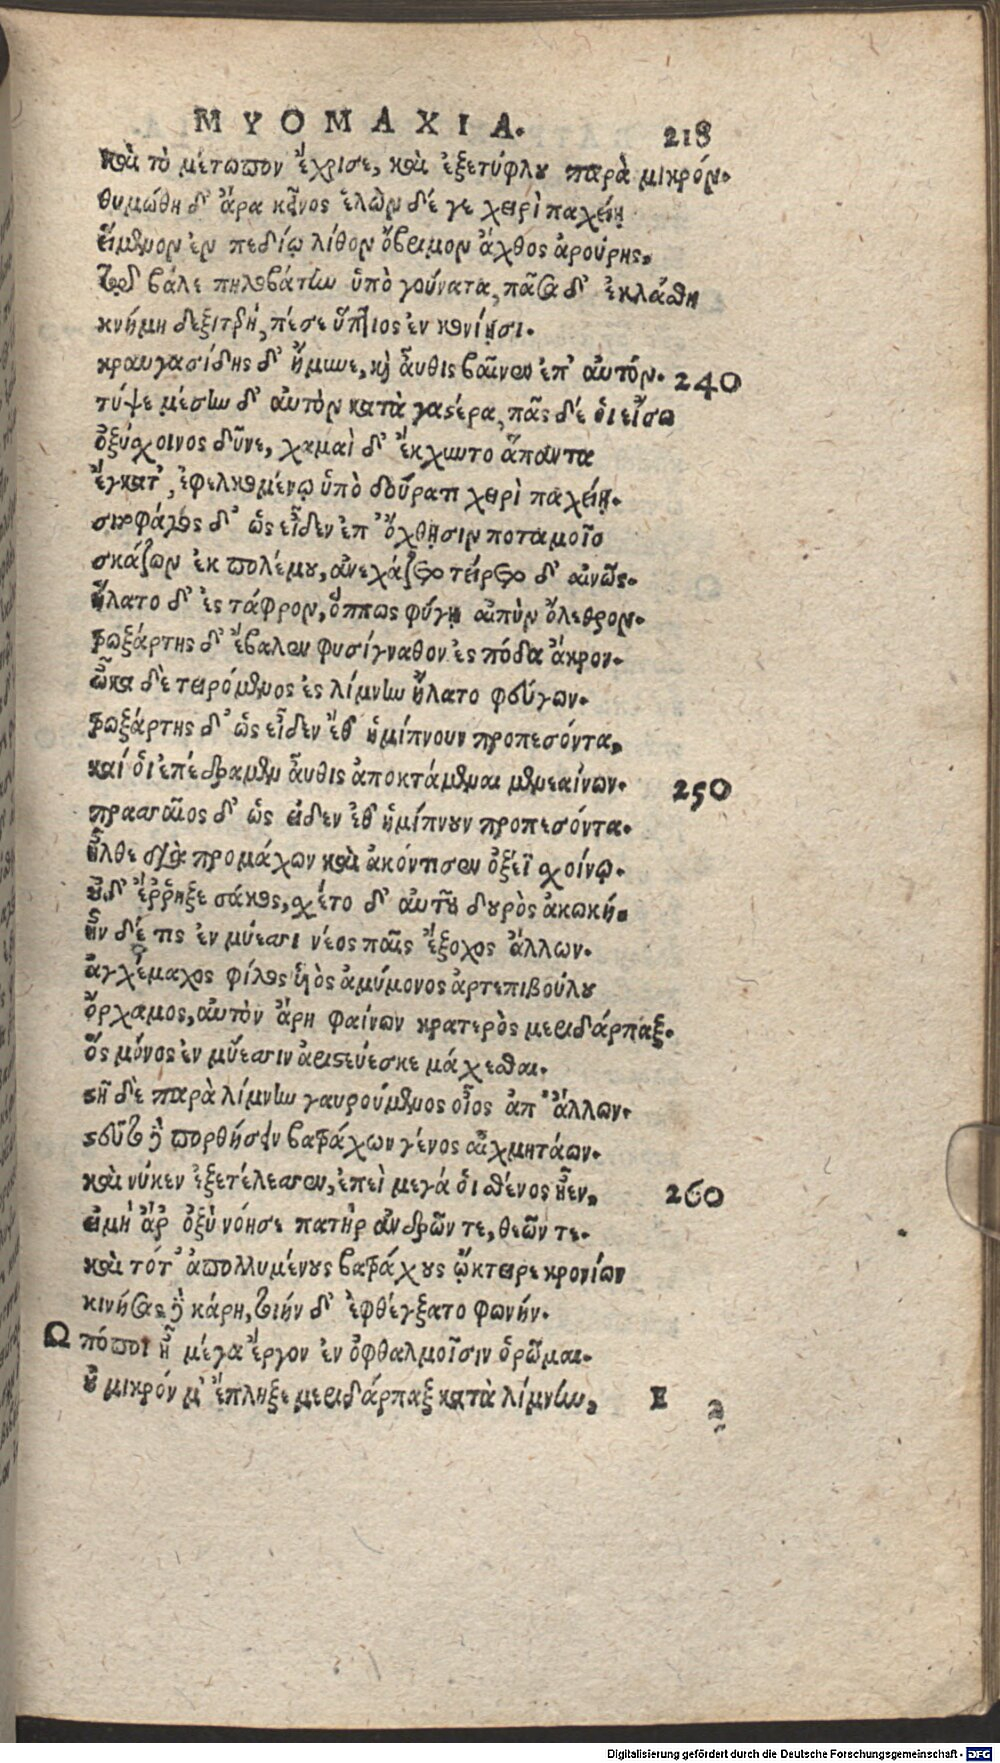 ΜΥΟΜΑΧΙΑ. 218
καὶ τὸ μέτωπον ἔχρισε, καὶ ἐξετύφλου παρὰ μικρόν.
θυμώθη δ' ἄρα κεῖνος ἑλὼν δέ γε χειρὶ παχείῃ
κείμενον ἐν πεδίῳ λίθον ὄβριμον ἄχθος ἀρούρης,
τῷδ βάλε πηλοβάτην ὑπὸ γούνατα, πᾶσα δ' ἐκλάσθη
κνήμη δεξιτερή, πέσε ὕπτιος ἐν κονίῃσι.
κραυγασίδης δ' ἤμυνε, καὶ αὖθις βαῖνεν ἐπ' αὐτόν. 240
τύψε μέσην δ' αὐτὸν κατὰ γαστέρα, πᾶς δέ οἱ εἴσω
ὀξύσχοινος δῦνε, χαμαὶ δ' ἔκχυντο ἅπαντα
ἔγκατ', ἐφελκομένῳ ὑπὸ δούρατι χειρὶ παχείῃ.
σιτοφάγος δ' ὡς εἶδεν ἐπ' ὄχθῃσιν ποταμοῖο
σκάζων ἐκ πολέμου, ἀνεχάζετο τείρετο δ' αἰνῶς.
ἥλατο δ' ἐς τάφρον, ὅππως φύγῃ αἰπὺν ὄλεθρον.
τρωξάρτης δ' ἔβαλεν φυσίγναθον ἐς πόδα ἄκρον.
ὦκα δὲ τειρόμενος ἐς λίμνην ἥλατο φεύγων.
τρωξάρτης δ' ὡς εἶδεν ἔθ' ἡμίπνουν προπεσόντα,
καί οἱ ἐπέδραμεν αὖθις ἀποκτάμεναι μενεαίνων. 250
πρασσαῖος δ' ὡς εἶδεν ἔθ' ἡμίπνουν προπεσόντα.
ἦλθε διὰ προμάχων καὶ ἀκόντισεν ὀξέϊ σχοίνῳ.
οὐδ' ἔρρηξε σάκος, σχέτο δ' αὐτοῦ δουρὸς ἀκωκή.
ἦν δέ τις ἐν μύεσσι νέος παῖς ἔξοχος ἄλλων.
ἀγχέμαχος φίλος υἱὸς ἀμύμονος ἀρτεπιβούλου
ὄρχαμος, αὐτὸν ἄρη φαίνων κρατερὸς μεριδάρπαξ.
ὃς μόνος ἐν μύεσσιν ἀριστεύεσκε μάχεσθαι.
στῆ δὲ παρὰ λίμνην γαυρούμενος οἶος ἀπ' ἄλλων.
στεῦτο δὲ πορθήσειν βατράχων γένος αἰχμητάων.
καὶ νύκεν ἐξετέλεσσεν, ἐπεὶ μεγά οἱ σθένος ἦεν,  260
εἰμὴ ἄρ' ὀξὺ νόησε πατὴρ ἀνδρῶν τε, θεῶν τε.
καὶ τότ' ἀπολλυμένους βατράχους ᾤκτειρε κρονίων
κινήσας δὲ κάρη, τοιήν δ' ἐφθέγξατο φωνήν.
Ω πόποι ἦ μέγα ἔργον ἐν ὀφθαλμοῖσιν ὁρῶμαι.
οὐ μικρόν μ' ἔπληξε μεριδάρπαξ κατὰ λίμνην, E 2
Digitalisierung gefördert durch die Deutsche Forschungsgemeinschaft - DFG